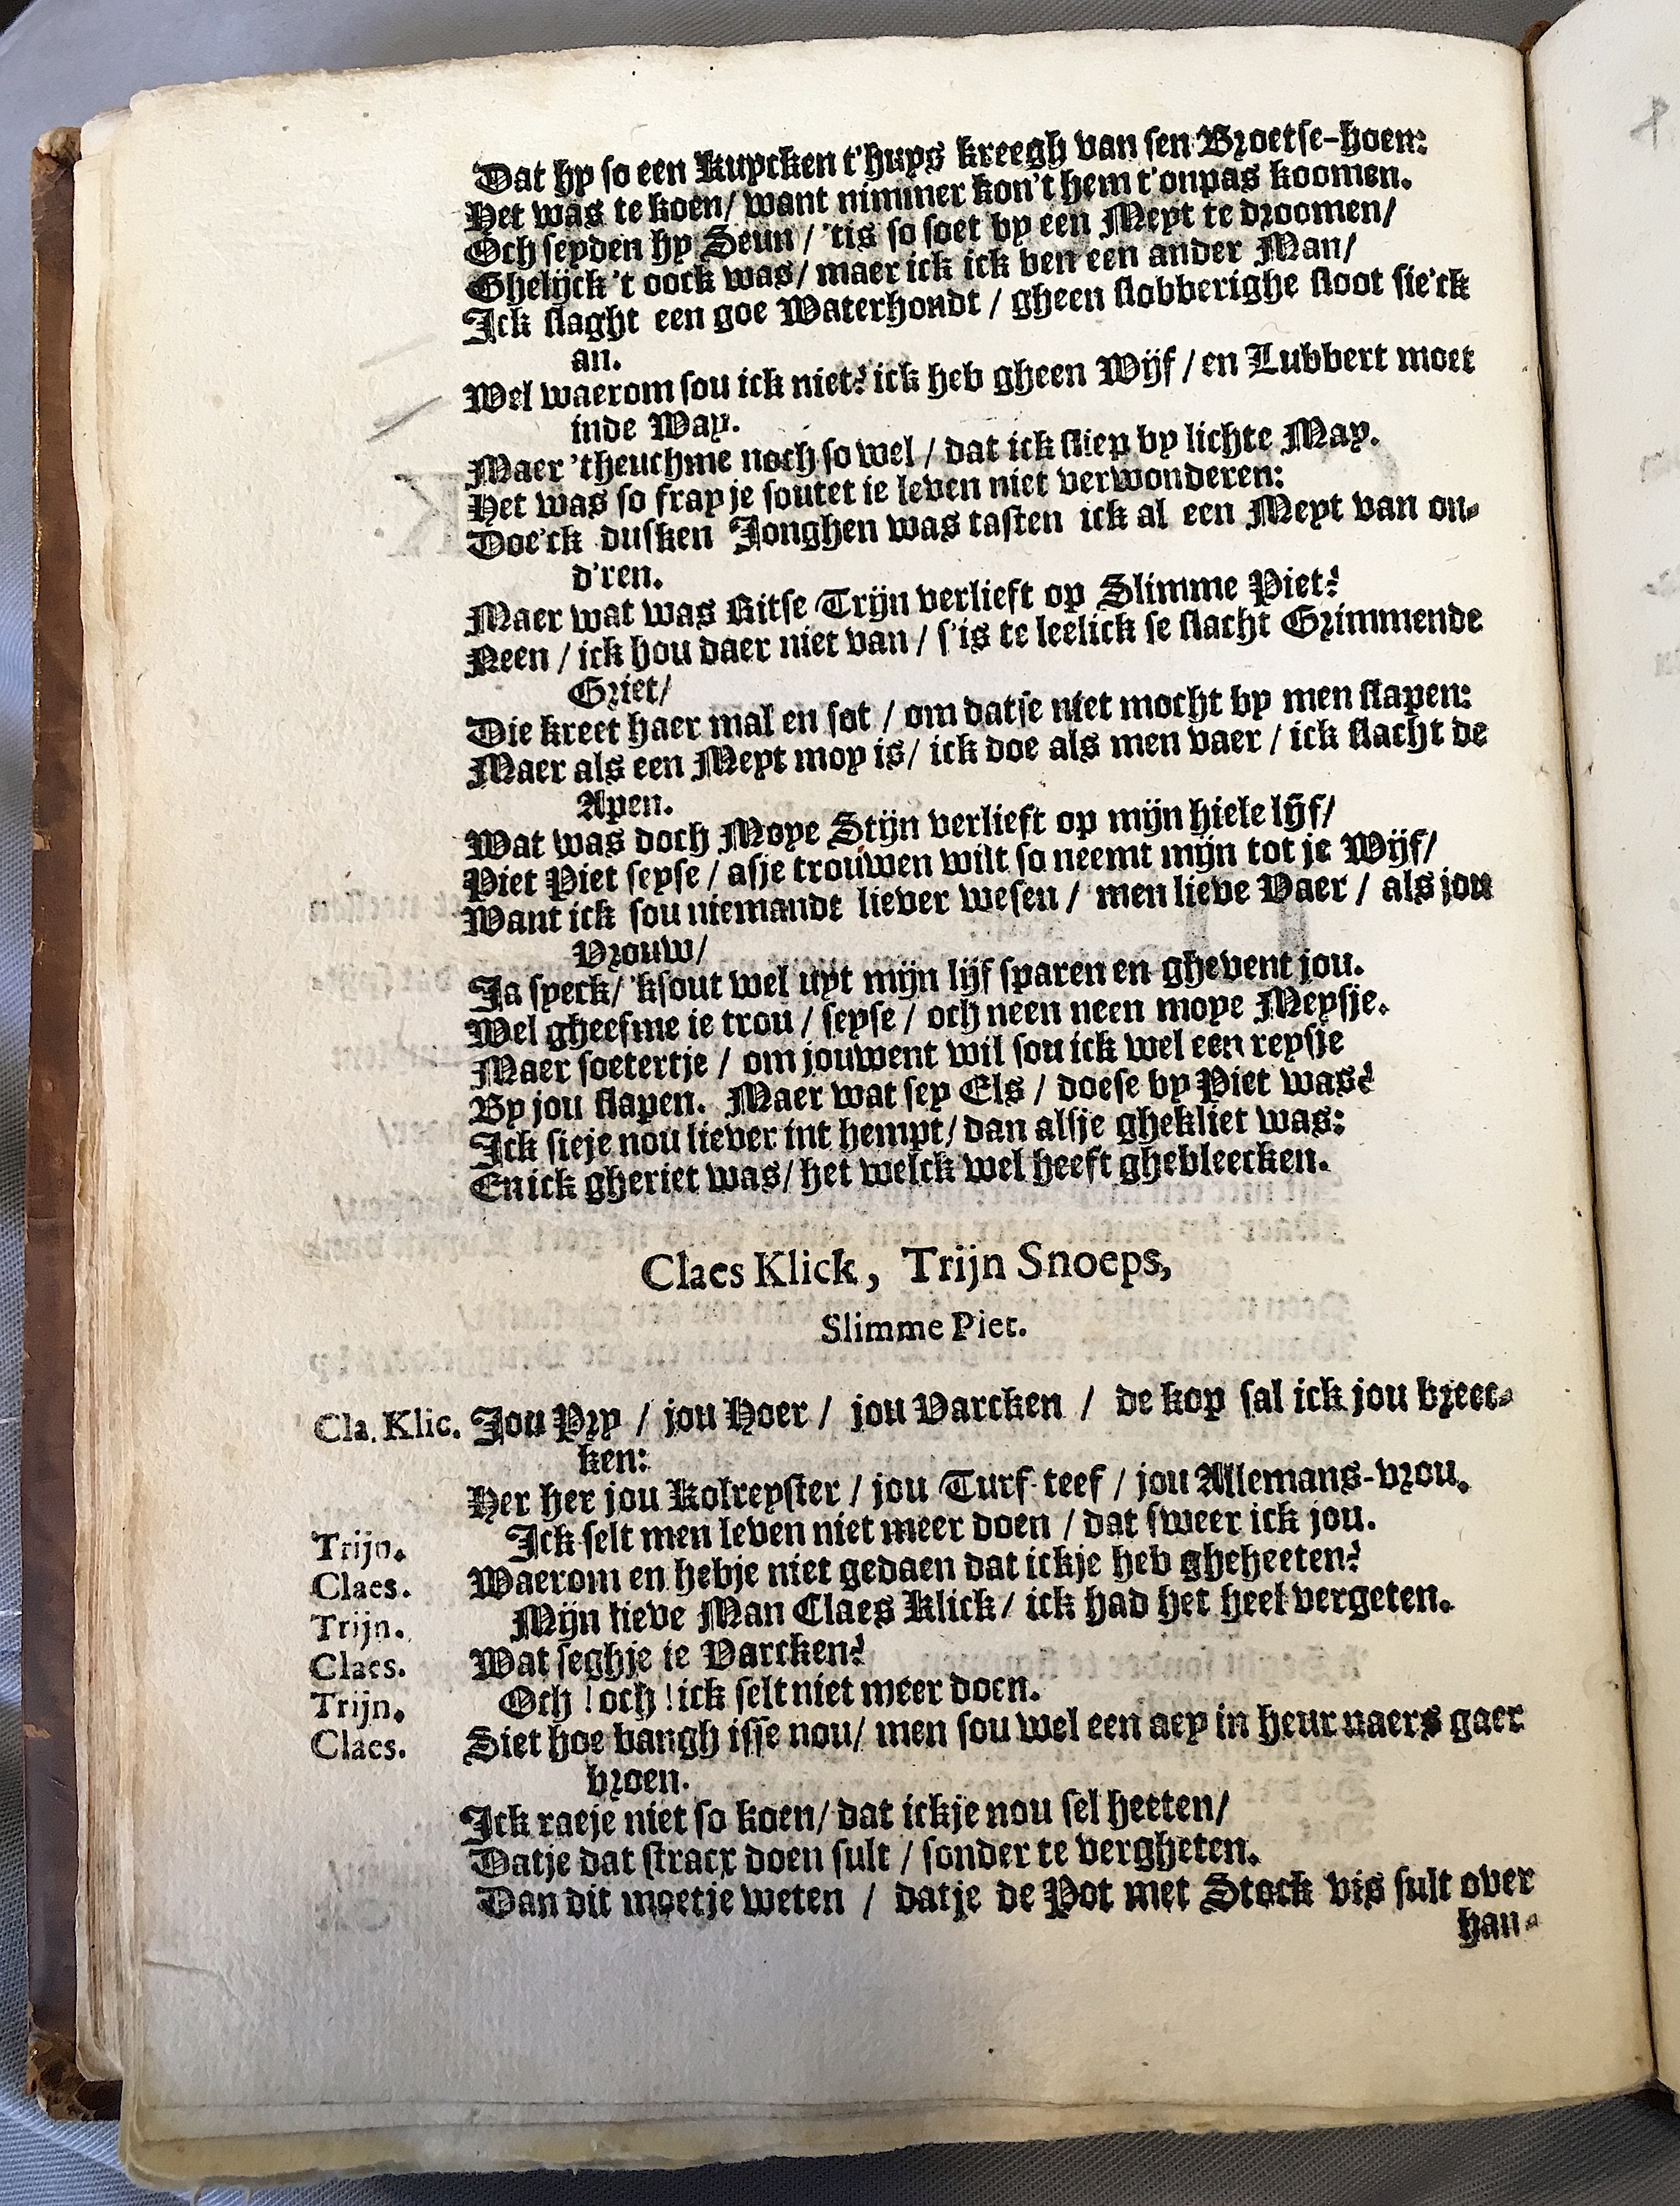 Dat hy so een Kuycken t'huys kreegh van sen Broetse-hoen:
Het was te koen/ want nimmer kon't hem t'onpas koomen.
Och seyden hy Seun / 'tis so soet by een Meyt te droomen/
Ghelijck 't oock was/ maer ick ick ben een ander Man/
Ick slaght een goe Waterhondt / gheen slobberighe sloot sie'ck
an.
Wel waerom sou ick niet? ick heb gheen Wijf / en Lubbert moet
inde Way.
Maer 'theuchme noch so wel / dat ick sliep by lichte May.
Het was so fray je soutet ie leven niet verwonderen:
Doe'ck dusken Jonghen was tasten ick al een Meyt van on-
d'ren.
Maer wat was Ritse Trijn verlieft op Slimme Piet?
Neen / ick hou daer niet van / s'is te leelick se slacht Grimmende
Griet/
Die kreet haer mal en sot / om datse niet mocht by men slapen:
Maer als een Meyt moy is/ ick doe als men vaer / ick slacht de
Apen.
Wat was doch Moye Stijn verlieft op mijn hiele lijf/
Piet Piet seyse / asje trouwen wilt so neemt mijn tot je Wijf/
Want ick sou niemandt liever wesen / men lieve Vaer / als jou
Vrouw/
Ja speck/ 'ksout wel uyt mijn lijf sparen en ghevent jou.
Wel gheefme ie trou / seyse / och neen neen moye Meysje.
Maer soetertje / om jouwent wil sou ick wel een reysje
By jou slapen. Maer wat sey Els / doese by Piet was?
Ick sieje nou liever int hempt/ dan alsje ghekliet was:
En ick gheriet was/ het welck wel heeft ghebleecken.
Claes Klick, Trijn Snoeps,
Slimme Piet.
Cla. Klic. Jou Pry / jou Hoer / jou Varcken / de kop sal ick jou breec-
ken:
Her her jou Kolreyster / jou Turf-teef / jou Allemans-vrou.
Trijn. Ick selt men leven niet meer doen / dat sweer ick jou.
Claes. Waerom en hebje niet gedaen dat ickje heb gheheeten?
Trijn. Mijn lieve Man Claes Klick/ ick had het heel vergeten.
Claes. Wat seghje ie Varcken?
Trijn. Och ! och ! ick selt niet meer doen.
Claes. Siet hoe bangh isse nou/ men sou wel een aey in heur naers gaer
broen.
Ick raeje niet so koen/ dat ickje nou sel heeten/
Datje dat stracx doen sult / sonder te vergheten.
Dan dit moetje weten / datje de Pot met Stock vis sult over
han-